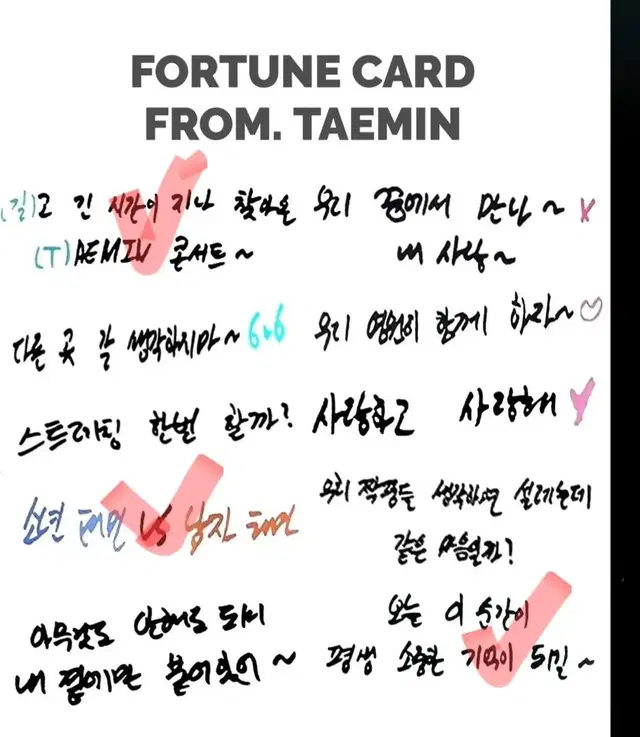 FORTUNE CARD
FROM. TAEMIN
(길)고 긴 시간이 지나 찾아온
(T)AEMIN 콘서트~
다른 곳 갈 생각하지마~ 6v6
스트레칭 한번 할까?
소년 태민 VS 남자 태민
아무것도 안해도 되니
내 옆에만 붙어있어~
우리 꿈에서 만나~
내 사랑~
우리 영원히 함께 하자~♡
사랑하고 사랑해
우리 짝꿍들 생각하면 설레는데
같은 마음일까?
오늘 이 순간이
평생 소중한 기억이 되길~